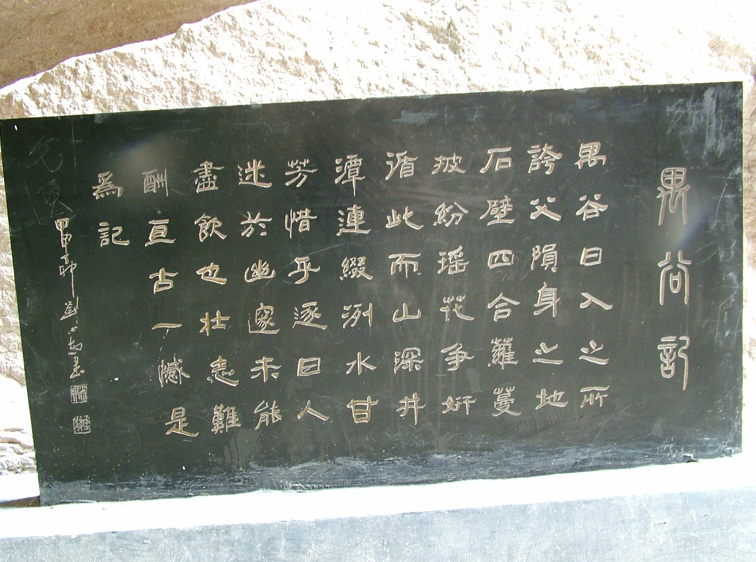 禺谷記
禺谷日入之所
誇父隕身之地
石壁四合蘿蔓
披紛瑤花爭妍
循此而山深井
潭連綴洌水甘
芳惜乎逐日人
迷於幽邃未能
盡飲也壮志難
酬亘古一憾是
為記
甲申